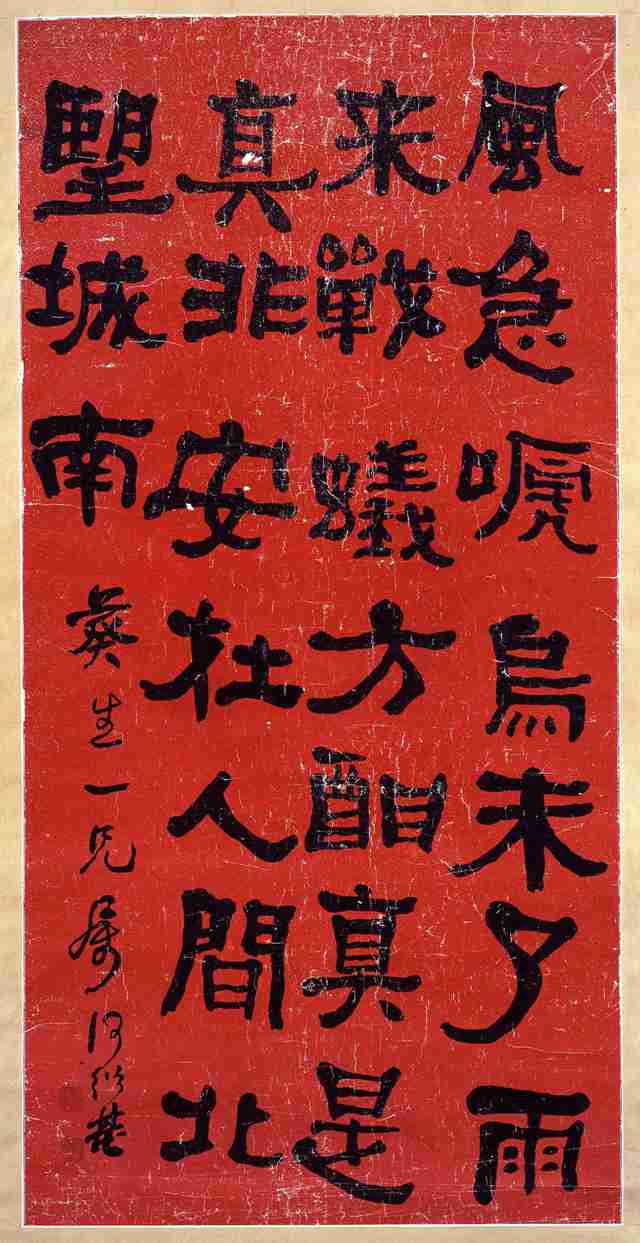 風急嗁烏未了雨
来戰蟻方酣真是
真非安在人間北
朢城南
葵生一兄属 何紹基